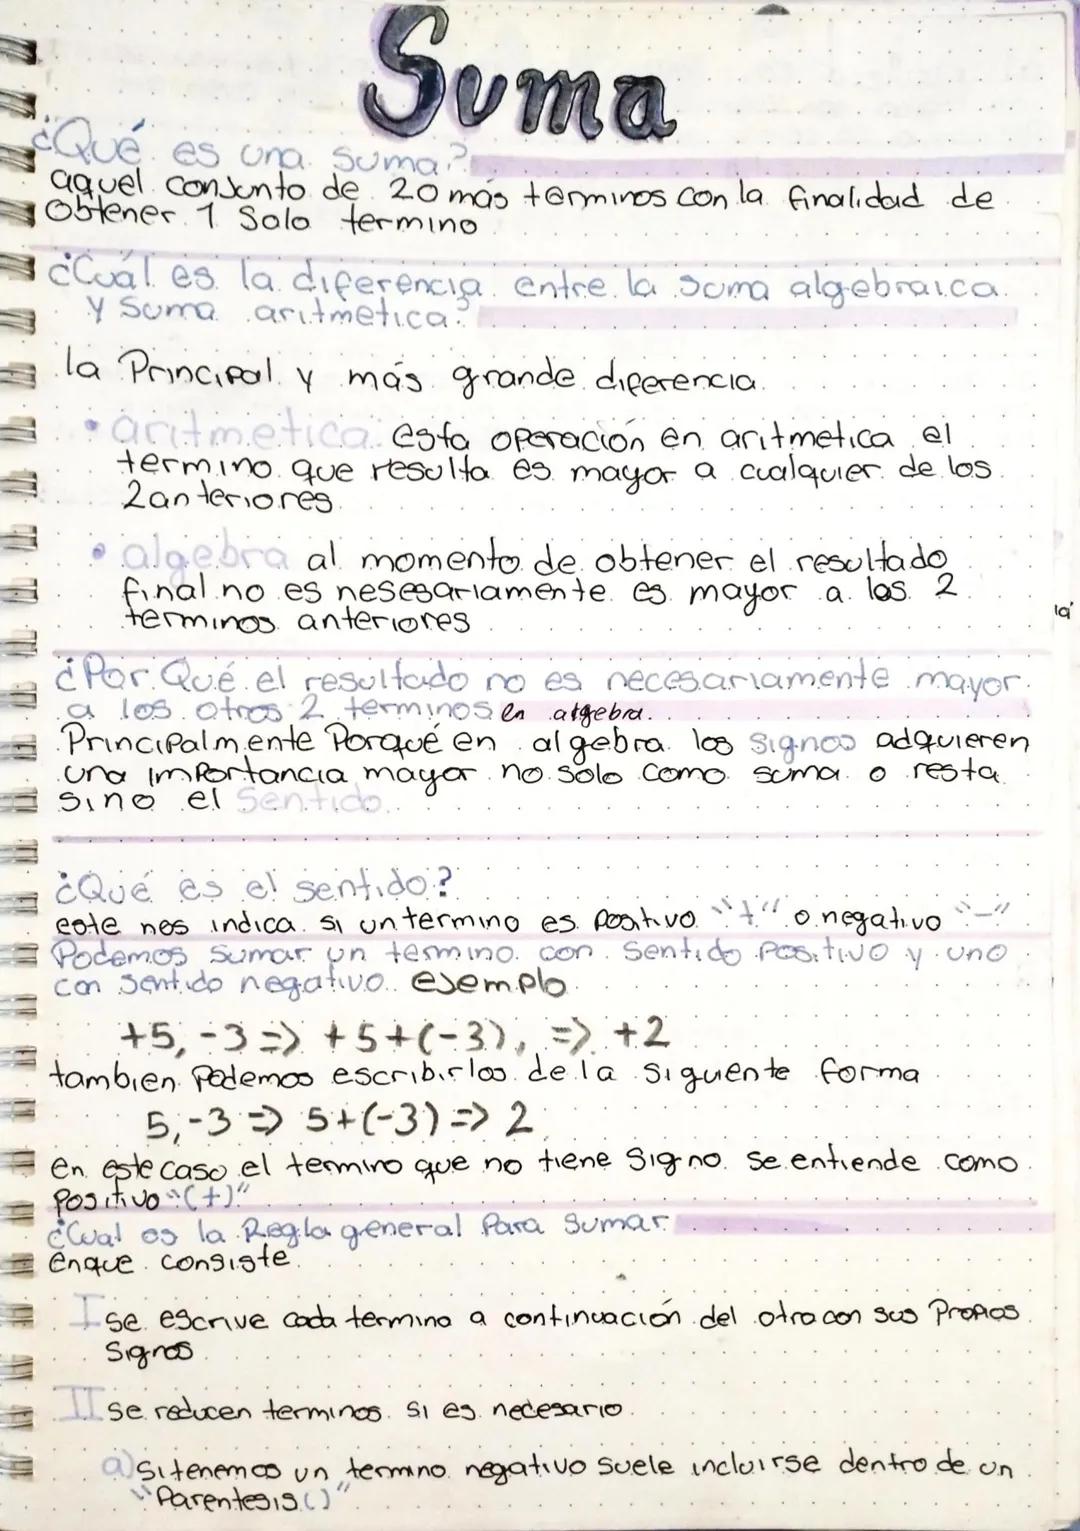 Suma
¿Qué es una suma?
aquel conjunto de 2o más terminos con la finalidad de
Obtener 1 Solo termino
¿Cuál es la diferencia entre la suma algebraica
y suma aritmetica?
la Principal y más grande diferencia
• aritmetica esta operación en aritmetica el
termino que resulta es mayor a cualquier de los
2 anteriores
• algebra al momento de obtener el resultado
final no es nesesariamente es mayor a los 2
terminos anteriores
¿Por Qué el resultado no es necesariamente mayor
a los otros 2 terminos en algebra.
Principalmente Porqué en algebra los signos adquieren
una importancia mayor no solo como suma o resta
sino el Sentido
¿Qué es el sentido?
este nos indica si un termino es positivo "+" o negativo "-"
Podemos sumar un termino con Sentido positivo y uno
con sentido negativo. ejemplo
+5, -3 => +5+(-3), => +2
tambien Podemos escribirlos de la siguente forma
5,-3 => 5+(-3) => 2
en este caso el termino que no tiene signo se entiende como
positivo "(+)"
¿Cual es la Regla general Para sumar
enque consiste
I se escrive cada termino a continuación del otro con sus Propios
Signos
II se reducen terminos si es necesario
a) Si tenemos un termino negativo suele incluirse dentro de un
"Parentesis ()"
la'